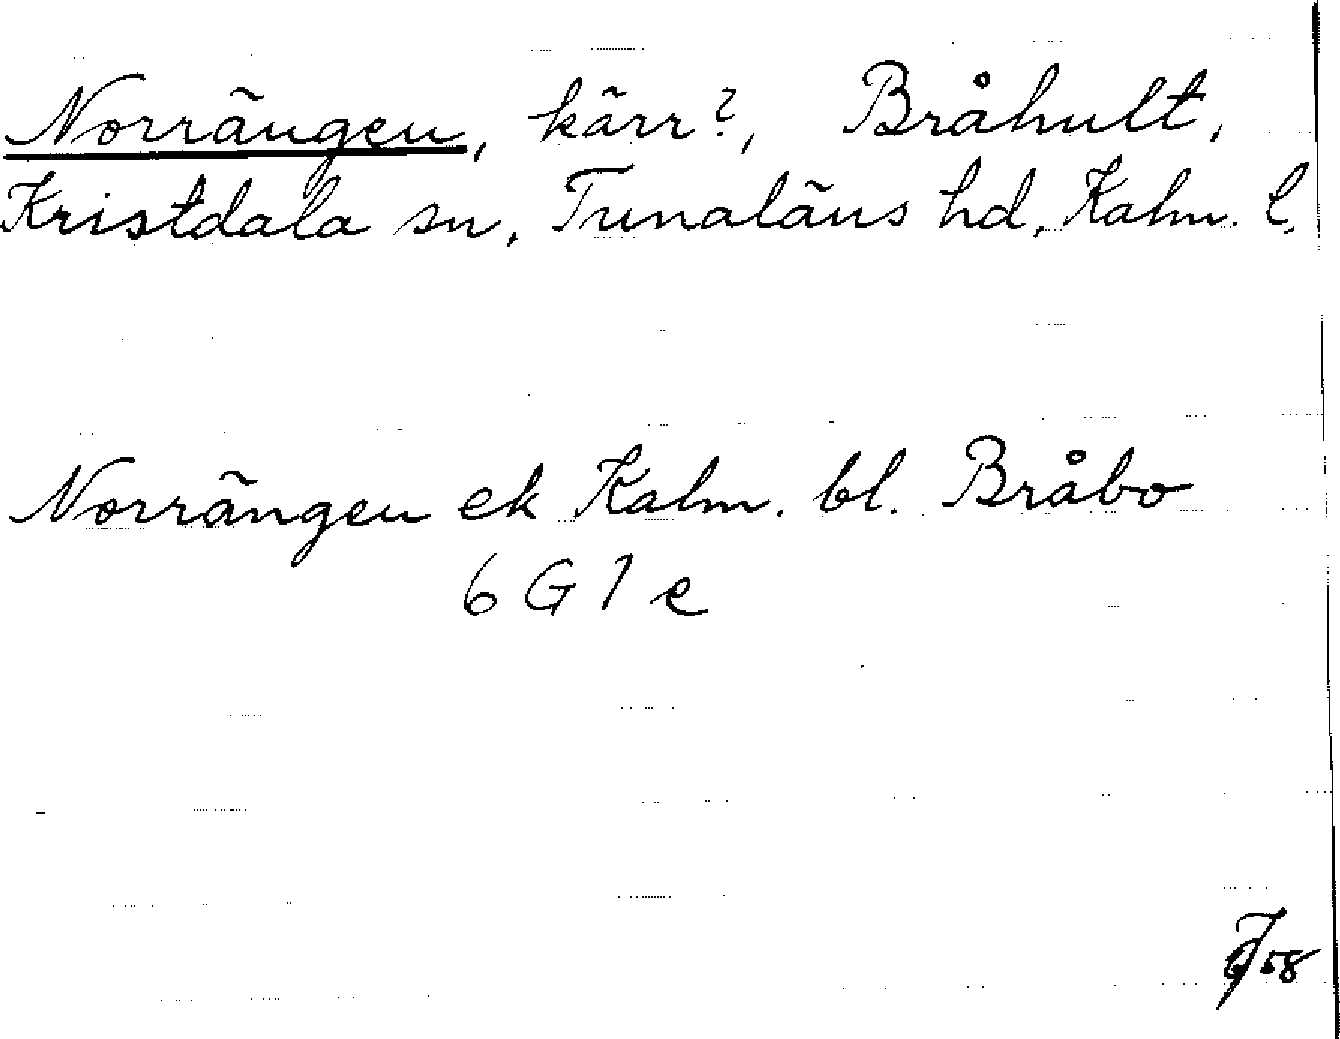 Norrängen, kärr?, Bråhult,
Kristdala sn, Tunaläns hd, Kalm. l.
Norrängen ek Kalm. bl. Bråbo
6 G 1 e
58